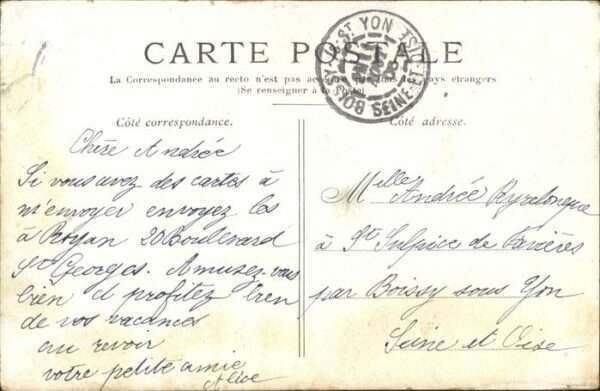 CARTE POSTALE
La Correspondance au recto n'est pas acceptée par tous les pays étrangers
(Se renseigner à la Poste)
BOISSY-S-ST YON
SEINE-ET-OISE
Côté correspondance.
Chère Andrée
Si vous avez des cartes à
m'envoyer envoyez les
à Royan 20 Boulevard
St Georges. Amusez-vous
bien et profitez bien
de vos vacances
au revoir
votre petite amie
Alice
Côté adresse.
Mlle Andrée
à St Sulpice de Favières
par Boissy sous Yon
Seine et Oise